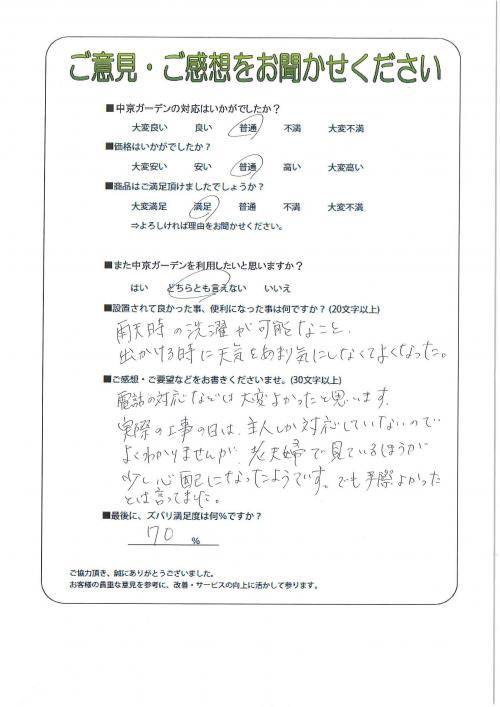 ご意見・ご感想をお聞かせください
■中京ガーデンの対応はいかがでしたか？
大変良い　良い　普通　不満　大変不満
■価格はいかがでしたか？
大変安い　安い　普通　高い　大変高い
■商品はご満足頂けましたでしょうか？
大変満足　満足　普通　不満　大変不満
⇒よろしければ理由をお聞かせください。
■また中京ガーデンを利用したいと思いますか？
はい　どちらとも言えない　いいえ
■設置されて良かった事、便利になった事は何ですか？(20文字以上)
雨天時の洗濯が可能なこと、
出かける時に天気をあまり気にしなくてよくなった。
■ご感想・ご要望などをお書きくださいませ。(30文字以上)
電話の対応などは大変よかったと思います。
実際の工事の日は、主人しか対応していないので
よくわかりませんが、老夫婦で見ているほうが
少し心配になったようです。でも手際よかった
とは言ってました。
■最後に、ズバリ満足度は何％ですか？
70 ％
ご協力頂き、誠にありがとうございました。
お客様の貴重な意見を参考に、改善・サービスの向上に活かして参ります。